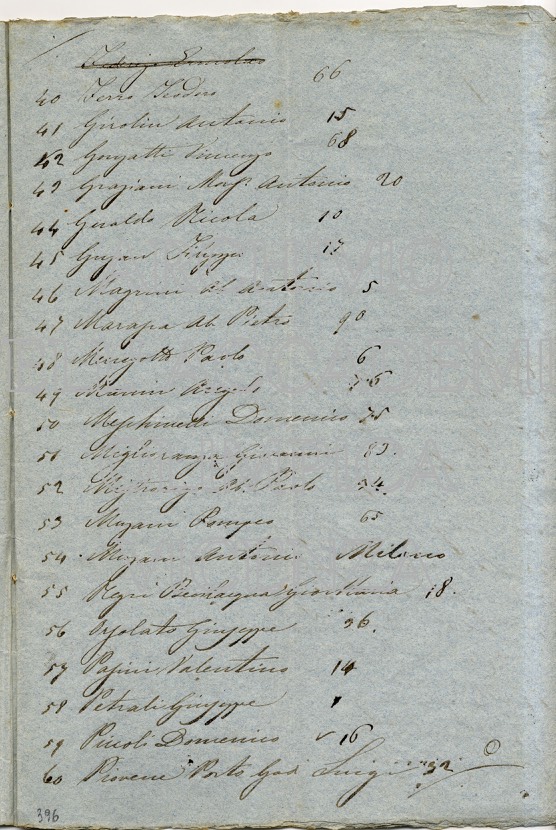 66
40 Ferro Teodoro
41 Girolin Antonio 15
42 Gonzatti Vincenzo 68
43 Graziani Antonio 20
44 Gualdo Nicola 10
45 Giuseppe 17
46 Magrini Ab. Antonio 5
47 Ab. Pietro 90
48 Menegotti Paolo 6
49
50 Domenico 75
51 Miglioranza Giovanni 83.
52 Ab. Paolo 34.
53 Muzani Pompeo 65
54 Muzani Antonio Milano
55 Negri Bevilacqua Giovanna 18.
56 Giuseppe 36.
57 Pasini Valentino 14
58 Petrali Giuseppe 1
59 Piccoli Domenico 16
60 Piovene Porto God. Luigi 32
396